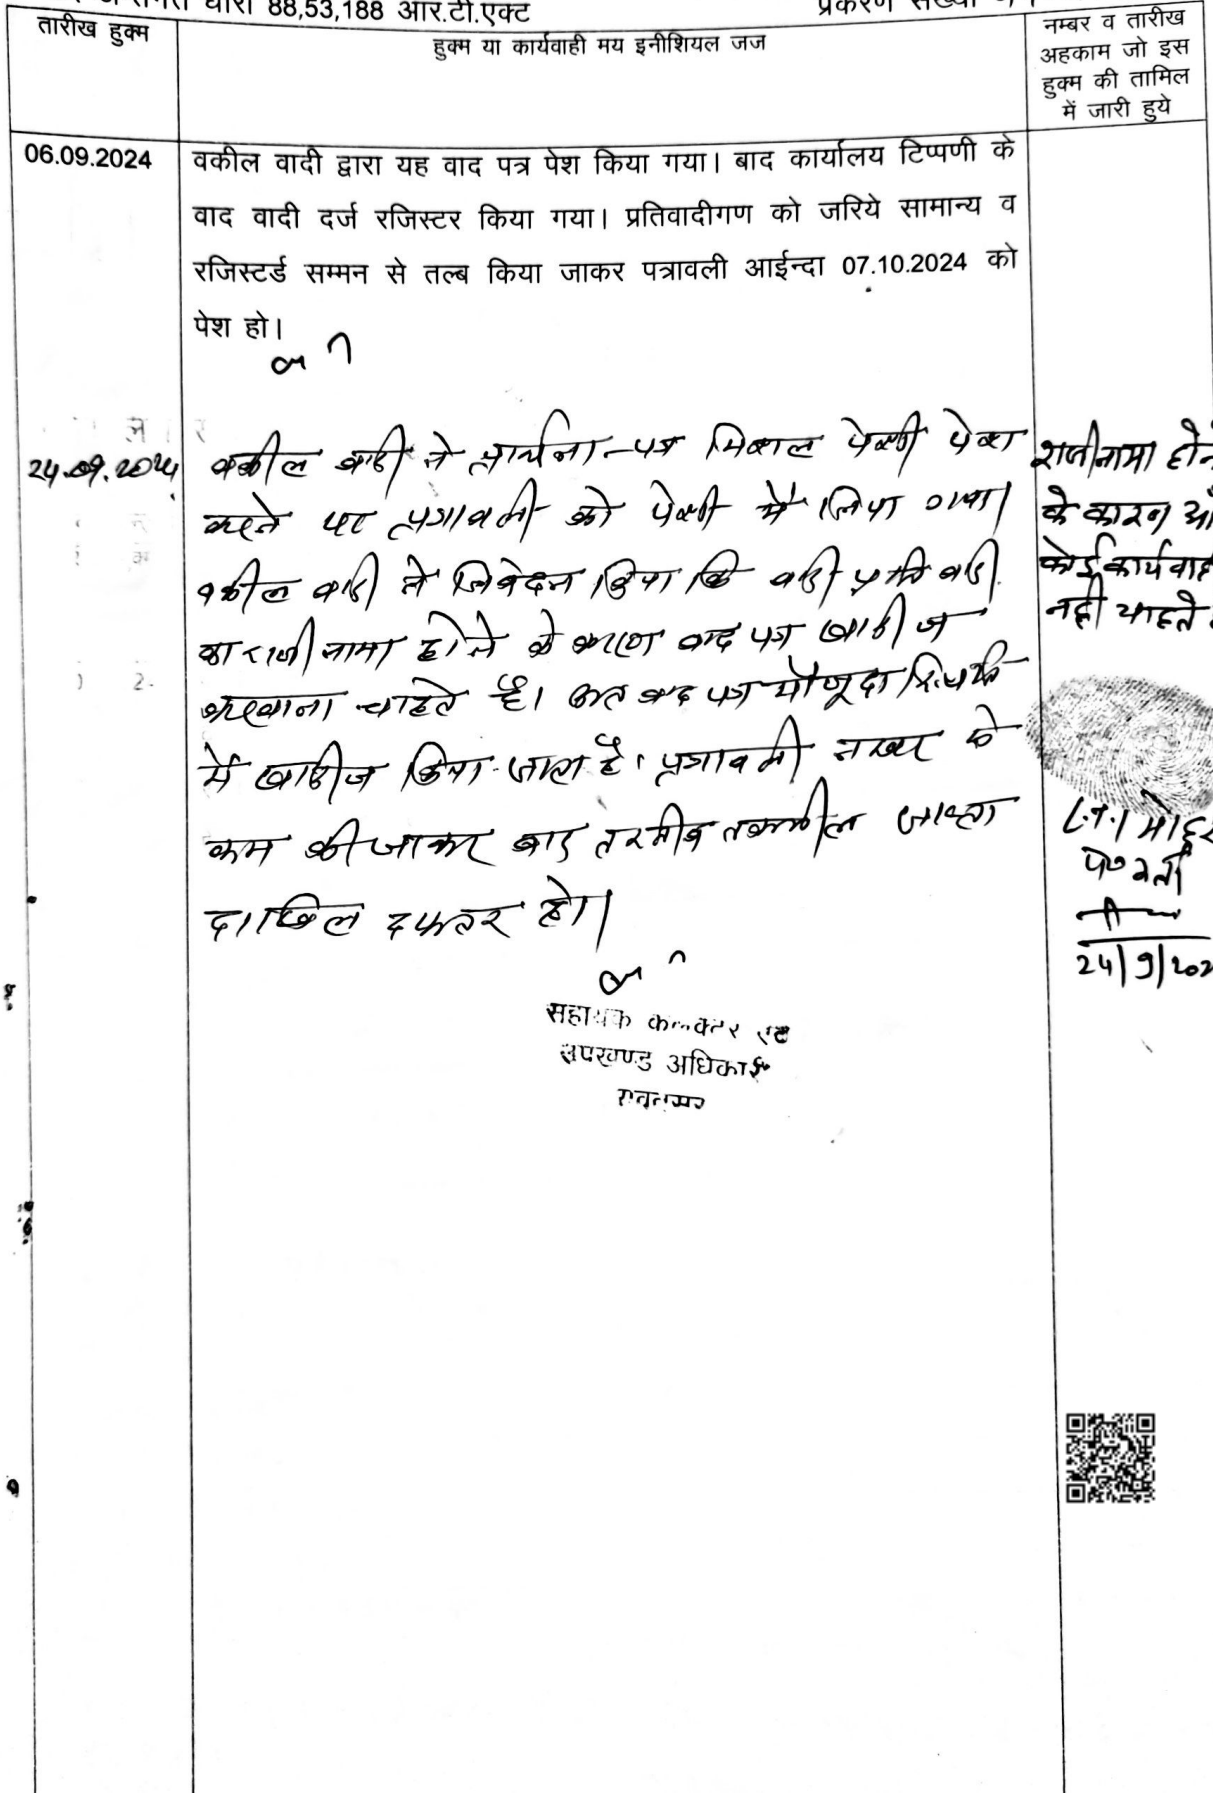 धारा 88,53,188 आर.टी.एक्ट
प्रकरण संख्या
तारीख हुक्म
हुक्म या कार्यवाही मय इनीशियल जज
नम्बर व तारीख
अहकाम जो इस
हुक्म की तामिल
में जारी हुये
06.09.2024
वकील वादी द्वारा यह वाद पत्र पेश किया गया। बाद कार्यालय टिप्पणी के
वाद वादी दर्ज रजिस्टर किया गया। प्रतिवादीगण को जरिये सामान्य व
रजिस्टर्ड सम्मन से तल्ब किया जाकर पत्रावली आईन्दा 07.10.2024 को
पेश हो।
24.09.2024
वकील वादी ने प्रार्थना-पत्र मिशल पेशी पेश
करने पर पत्रावली को पेशी में लिया गया।
वकील वादी ने निवेदन किया कि वादी प्रतिवादी
का राजीनामा होने के कारण वाद पत्र खारीज
करवाना चाहते है। अत वाद पत्र मौजूदा स्थिति
में खारीज किया जाता है। पत्रावली नम्बर से
कम की जाकर बाद तरमीब तकमील जाब्ता
दाखिल दफ्तर हो।
सहायक कलक्टर एवं
उपखण्ड अधिकारी
रावतसर
राजीनामा होने
के कारन
कोई कार्यवाही
नही चाहते
24/9/202